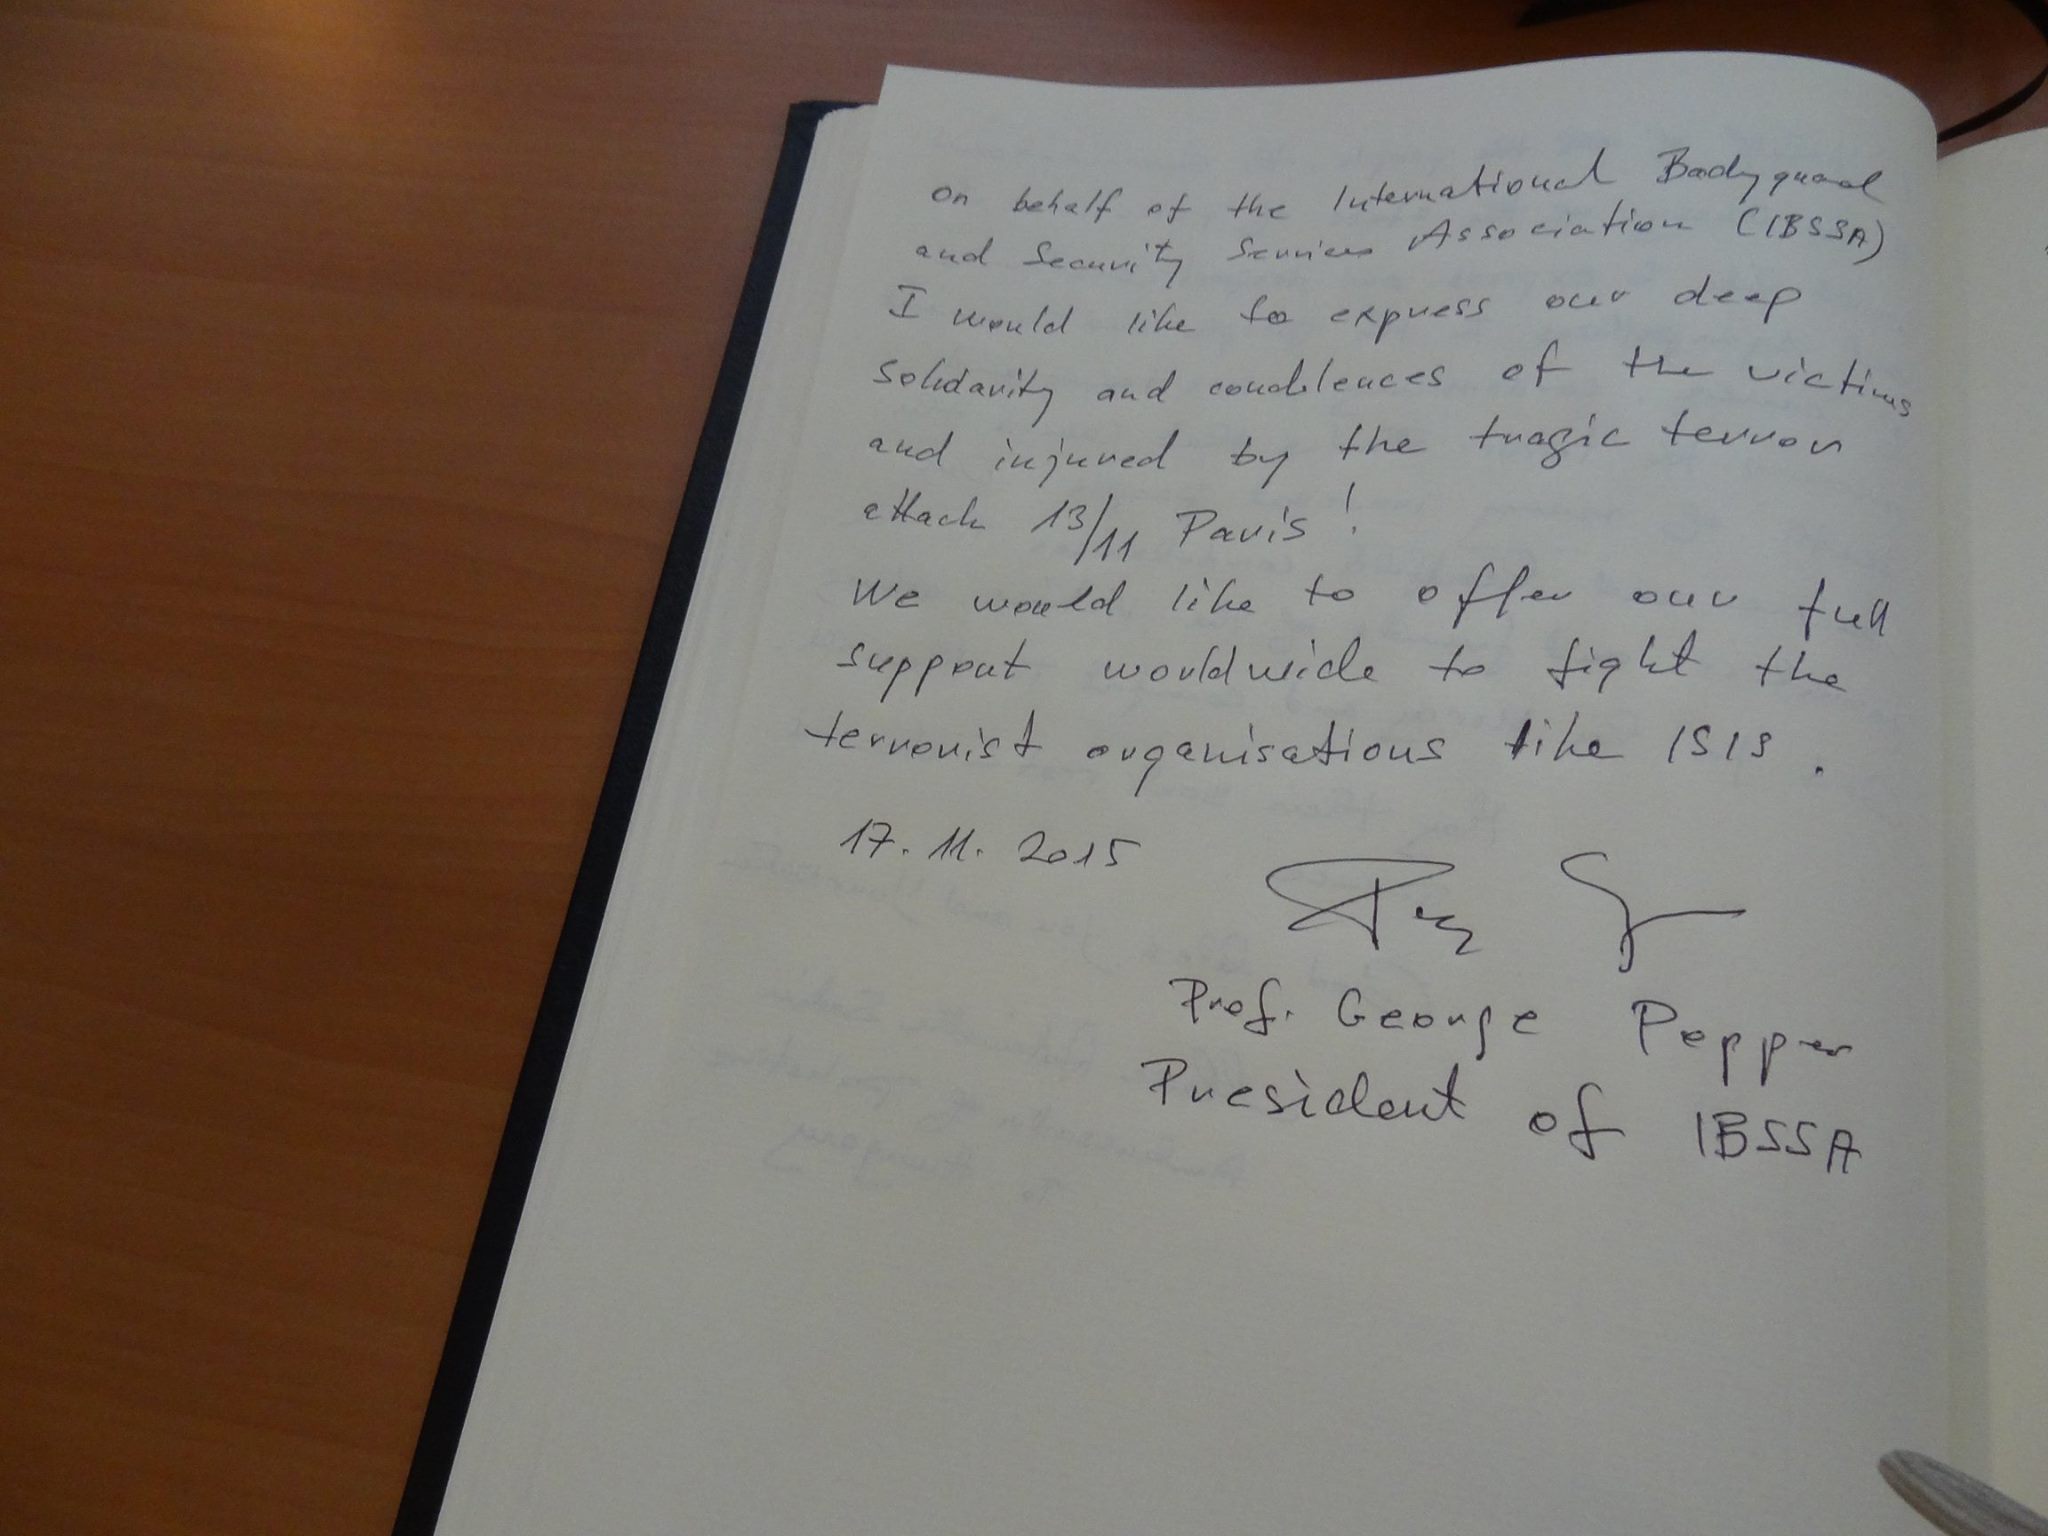 on behalf of the International Bodyguard
and Security Services Association (IBSSA)
I would like to express our deep
solidarity and condolences of the victims
and injured by the tragic terror
attack 13/11 Paris!
We would like to offer our full
support worldwide to fight the
terrorist organisations like ISIS.
17. 11. 2015
Prof. George Popper
President of IBSSA